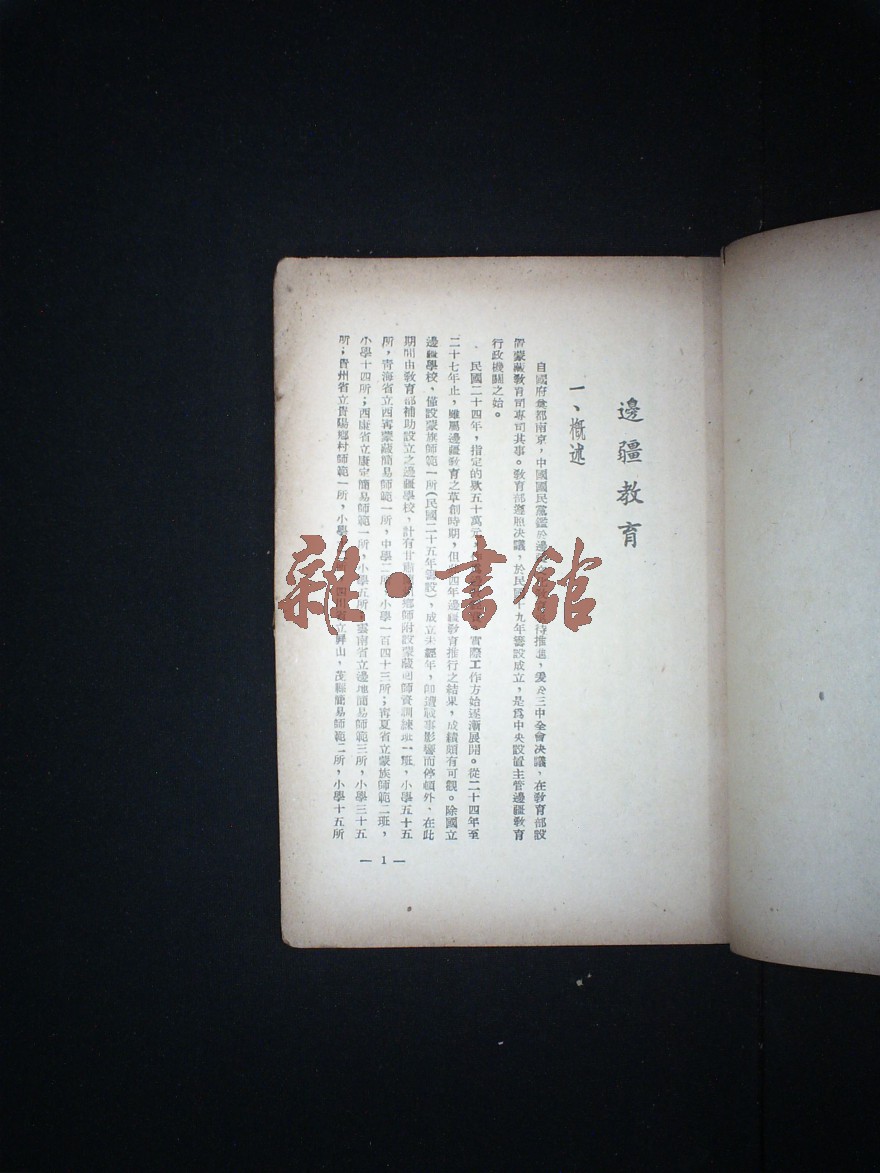 邊疆教育
一、概述
自國府奠都南京，中國國民黨鑑於邊待推進，爰於三中全會決議，在敎育部設
置蒙藏敎育司專司其事。敎育部遵照决議，於民國十九年籌設成立，是爲中央設置主管邊疆敎育
行政機關之始。
民國二十四年，指定的欵五十萬元實際工作方始逐漸展開。從二十四年至
二十七年止，雖屬邊疆敎育之草創時期，但四年邊疆敎育推行之結果，成績頗有可觀。除國立
邊疆學校，僅設蒙族師範一所（民國二十五年籌設），成立未經年，卽遭戰事影響而停頓外，在此
期間由敎育部補助設立之邊疆學校，計有甘肅鄉師附設蒙藏回師資訓練班一班，小學五十五
所，靑海省立西寗蒙藏簡易師範一所，中學二所，小學一百四十三所；寗夏省立蒙族師範二班，
小學十四所；西康省立康定簡易師範一所，小學五所；雲南省立邊地簡易師範三所，小學三十五
所；貴州省立貴陽鄉村師範一所，小學四川省立屛山，茂縣簡易師範二所，小學十五所
— 1 —
雜·書館